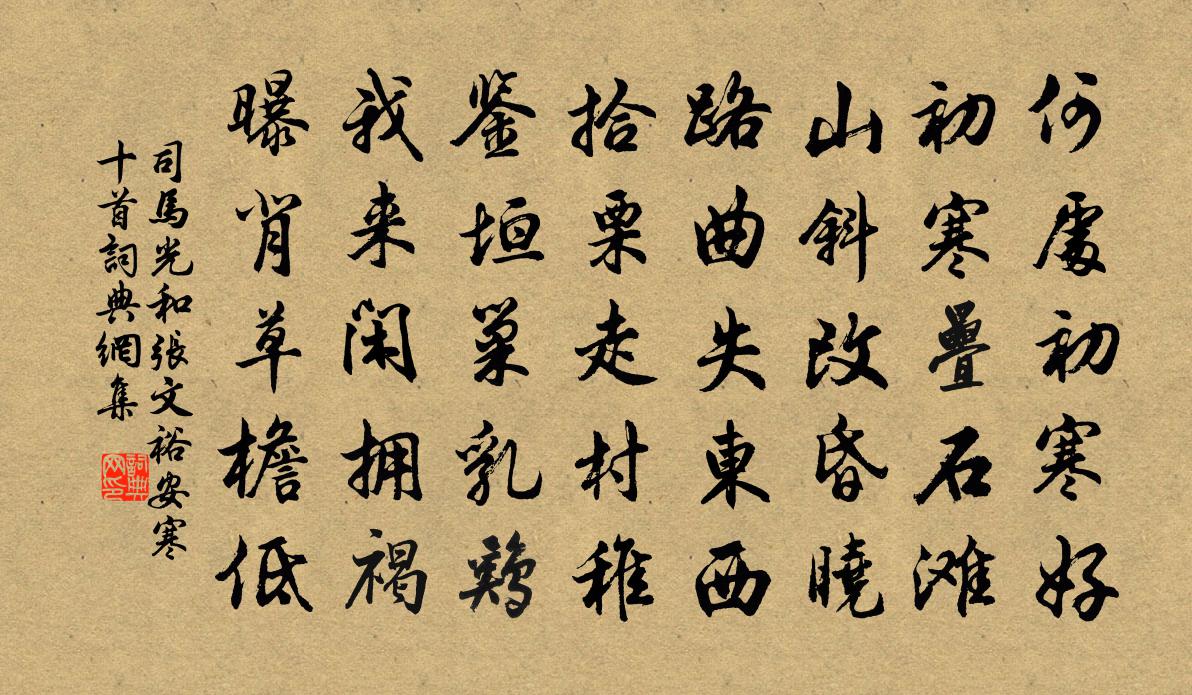 何處初寒好
初寒疊石滩
山斜改昏曉
路曲失東西
拾栗走村稚
鉴垣巢乳鷄
我来閑拥褐
曝背草檐低
司馬光和張文裕安寒
十首詞典網集
詞典网印